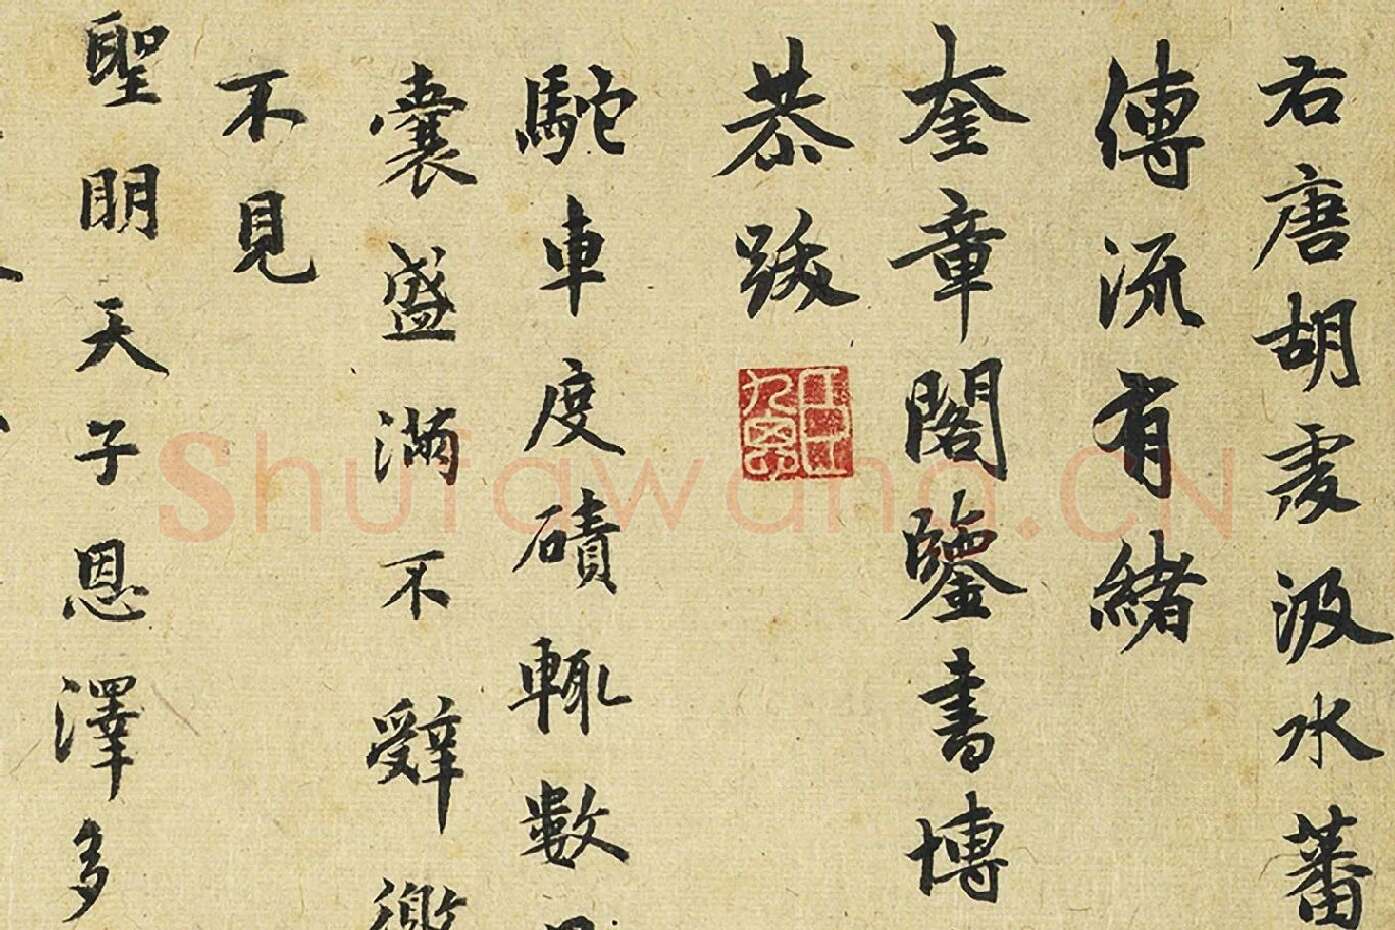 右唐胡虔汲水蕃
傳流有緒
奎章閣鑒書博
恭跋
駝車度磧輒數
囊盛滿不辭
不見
聖明天子恩澤多
Shufawang.CN